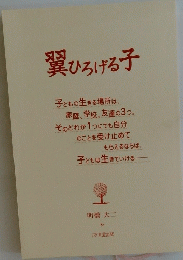 翼ひろげる子
子どもの生きる場所は
家庭、学校、友達の3つ。
そのどれか1つにでも自分
のことを受け止めて
もらえるならば、
子どもは生きていける──